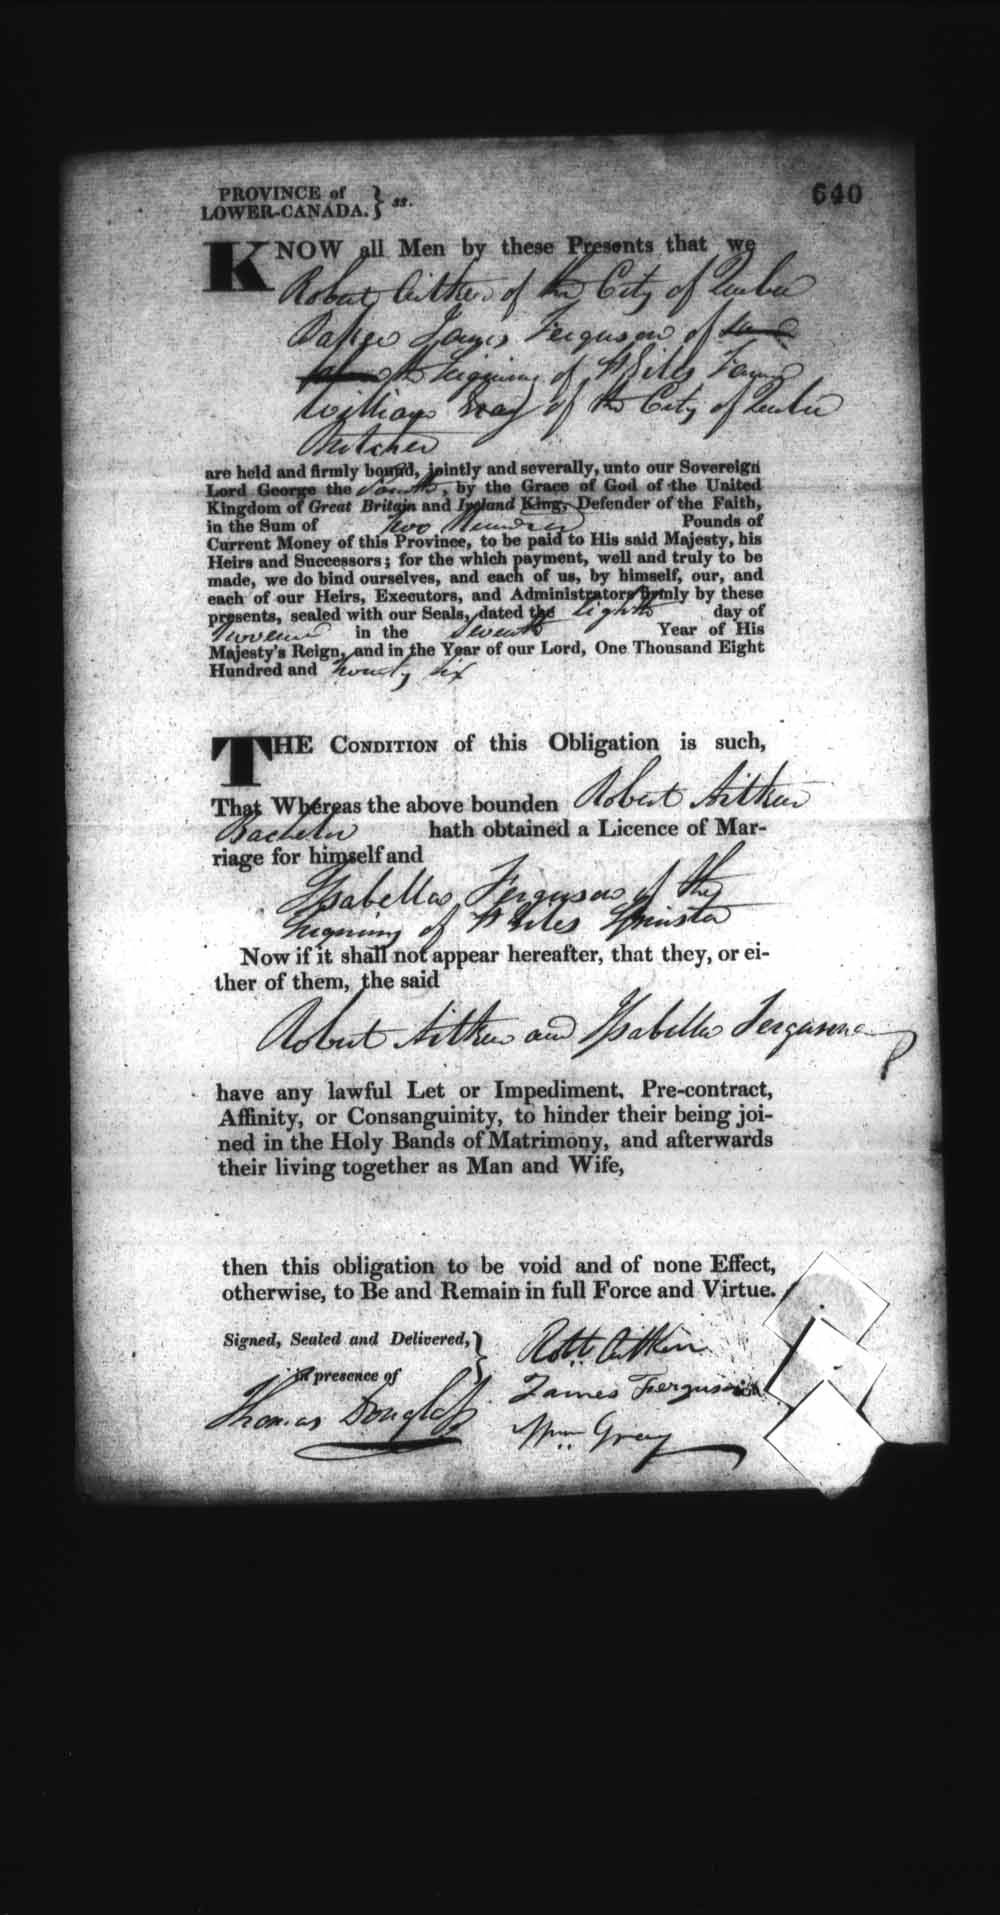 PROVINCE of
LOWER-CANADA. } ss.
640
KNOW all Men by these Presents that we
Robert Aitken of the City of Quebec
Baker James Ferguson of
the Seigniory of St Giles Farmer
William Gray of the City of Quebec
Butcher
are held and firmly bound, jointly and severally, unto our Sovereign
Lord George the Fourth, by the Grace of God of the United
Kingdom of Great Britain and Ireland King, Defender of the Faith,
in the Sum of Two Hundred Pounds of
Current Money of this Province, to be paid to His said Majesty, his
Heirs and Successors; for the which payment, well and truly to be
made, we do bind ourselves, and each of us, by himself, our, and
each of our Heirs, Executors, and Administrators firmly by these
presents, sealed with our Seals, dated the Eighth day of
November in the Seventh Year of His
Majesty's Reign, and in the Year of our Lord, One Thousand Eight
Hundred and twenty six
THE CONDITION of this Obligation is such,
That Whereas the above bounden Robert Aitken
Bachelor hath obtained a Licence of Mar-
riage for himself and
Isabella Ferguson of the
Seigniory of St Giles Spinster
Now if it shall not appear hereafter, that they, or ei-
ther of them, the said
Robert Aitken and Isabella Ferguson
have any lawful Let or Impediment, Pre-contract,
Affinity, or Consanguinity, to hinder their being joi-
ned in the Holy Bands of Matrimony, and afterwards
their living together as Man and Wife,
then this obligation to be void and of none Effect,
otherwise, to Be and Remain in full Force and Virtue.
Signed, Sealed and Delivered, }
in presence of
Robt. Aitken
James Ferguson
Thomas Douglass
Wm. Gray